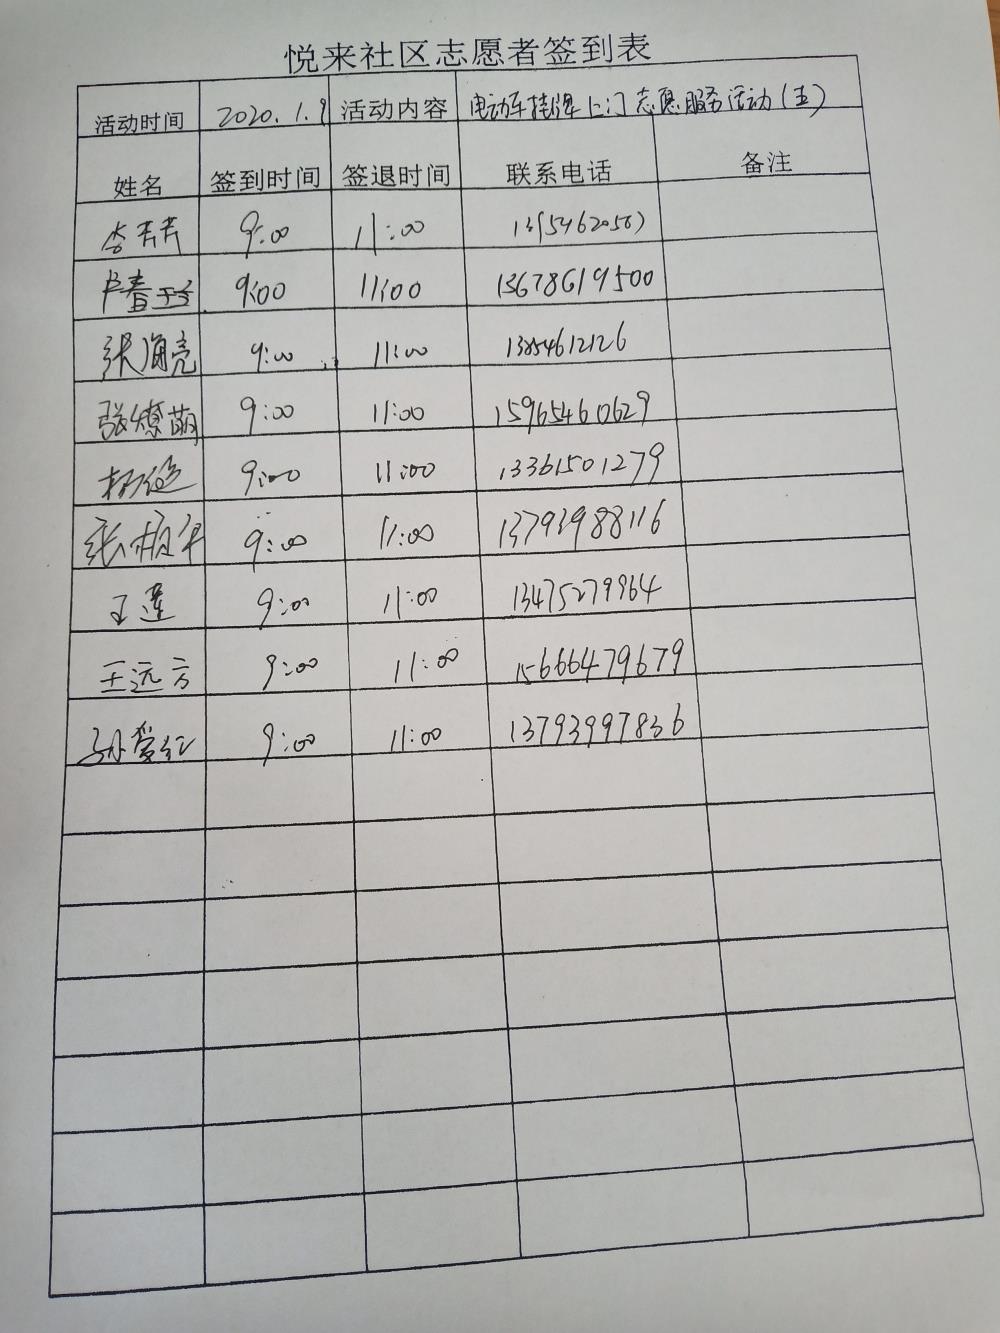 悦来社区志愿者签到表
活动时间 2020.1.9 活动内容 电动车挂牌上门志愿服务活动(五)
姓名 签到时间 签退时间 联系电话 备注
李芳芳 9:00 11:00
9:00 11:00 13678619500
张海亮 9:00 11:00 13854612126
张燎萌 9:00 11:00 15965460629
9:00 11:00 13361501279
9:00 11:00 13793988116
王莲 9:00 11:00 13475279964
王远方 9:00 11:00 15666479679
孙爱红 9:00 11:00 13793997836